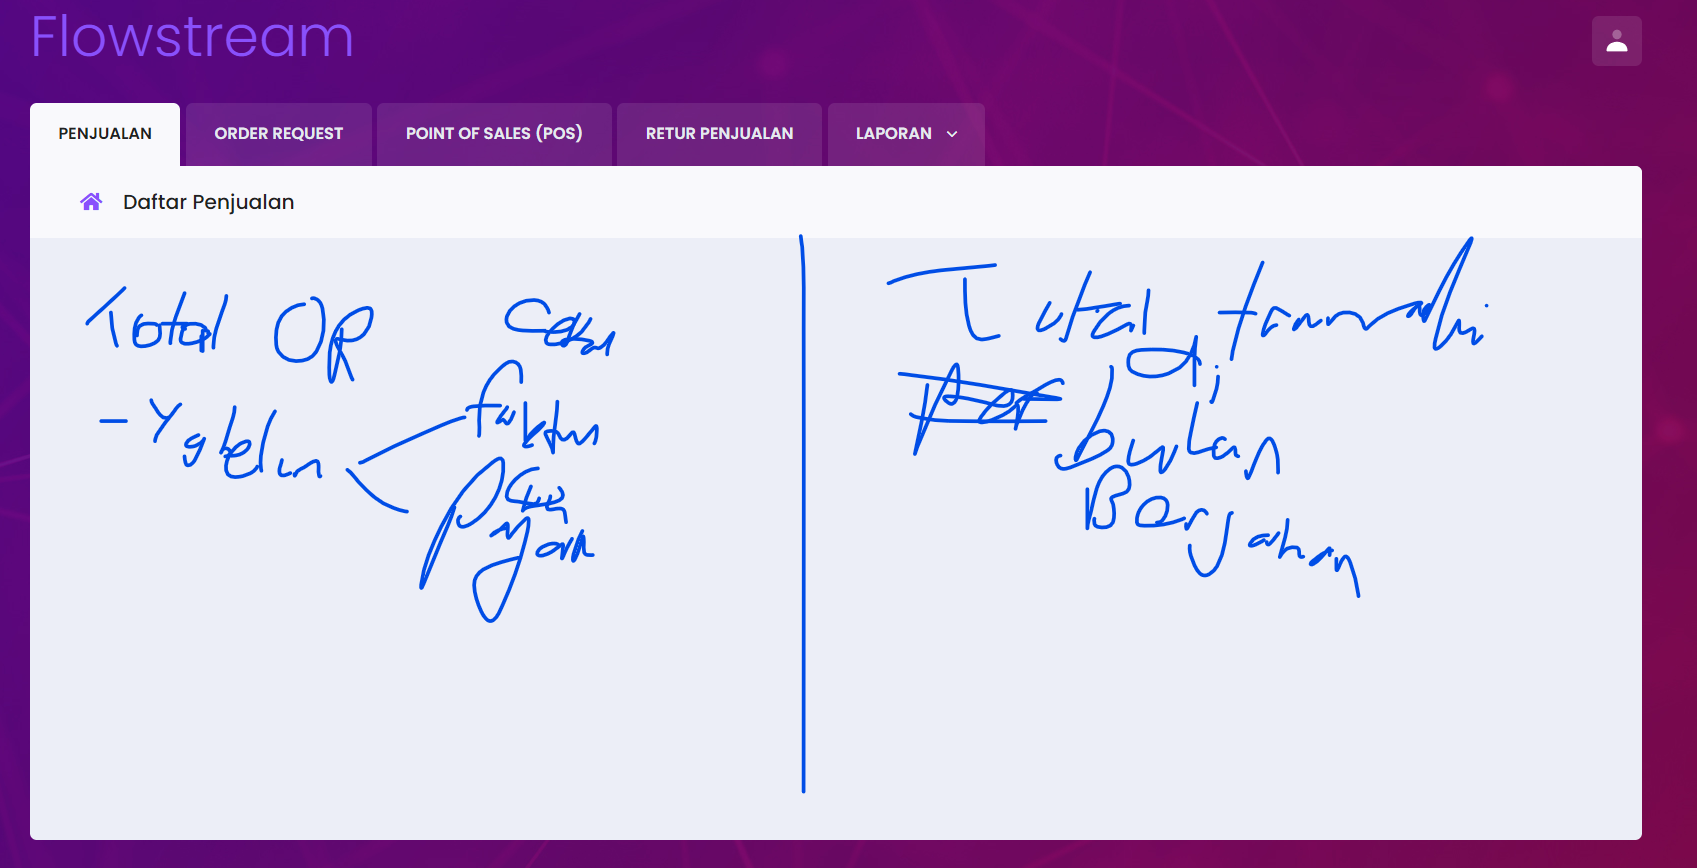 Flowstream
PENJUALAN ORDER REQUEST POINT OF SALES (POS) RETUR PENJUALAN LAPORAN
Daftar Penjualan
Total OR
- Yg blm
faktur
Total transaksi
di
bulan
Berjalan